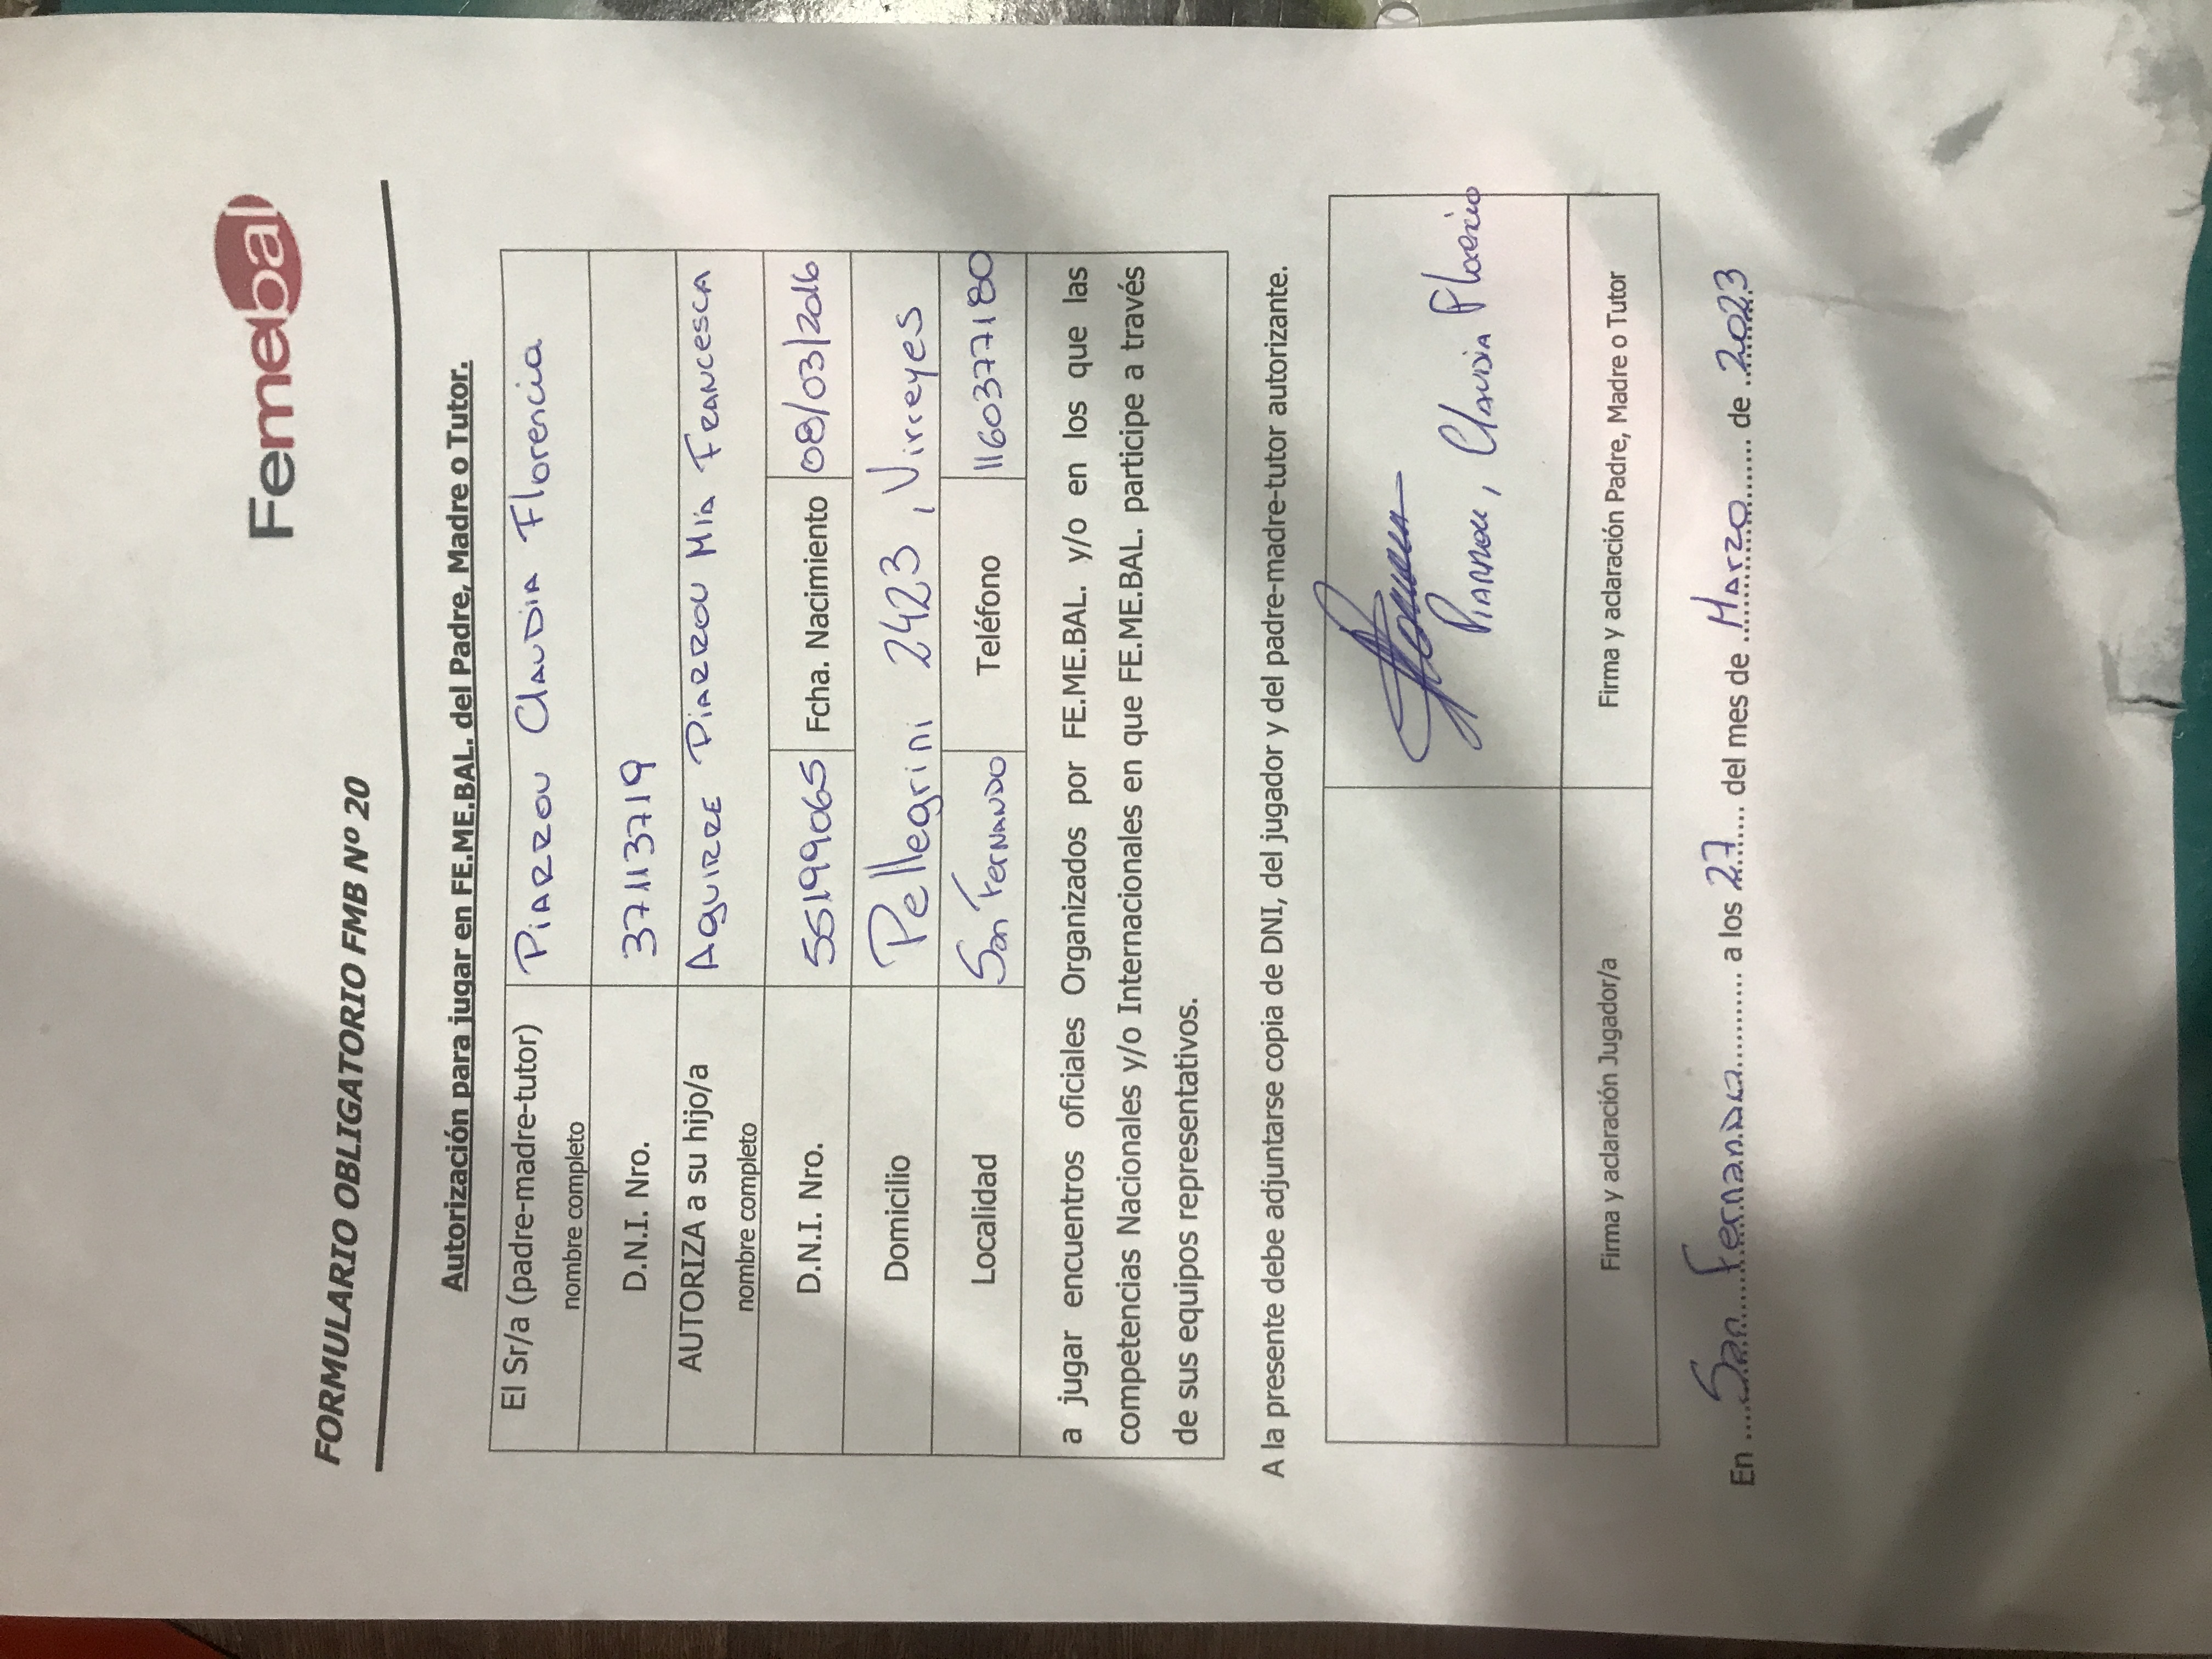 Femebal
FORMULARIO OBLIGATORIO FMB Nº 20
Autorización para jugar en FE.ME.BAL. del Padre, Madre o Tutor.
El Sr/a (padre-madre-tutor) nombre completo PIARROU CLAUDIA Florencia
D.N.I. Nro. 37113719
AUTORIZA a su hijo/a nombre completo AGUIRRE PIARROU MIA FRANCESCA
D.N.I. Nro. 55199065 Fcha. Nacimiento 08/03/2016
Domicilio Pellegrini 2423, Virreyes
Localidad San Fernando Teléfono 1160377180
a jugar encuentros oficiales Organizados por FE.ME.BAL. y/o en los que las
competencias Nacionales y/o Internacionales en que FE.ME.BAL. participe a través
de sus equipos representativos.
A la presente debe adjuntarse copia de DNI, del jugador y del padre-madre-tutor autorizante.
PIARROU, Claudia Florencia
Firma y aclaración Jugador/a Firma y aclaración Padre, Madre o Tutor
En ....San Fernando.......... a los 27...... del mes de Marzo....... de 2023